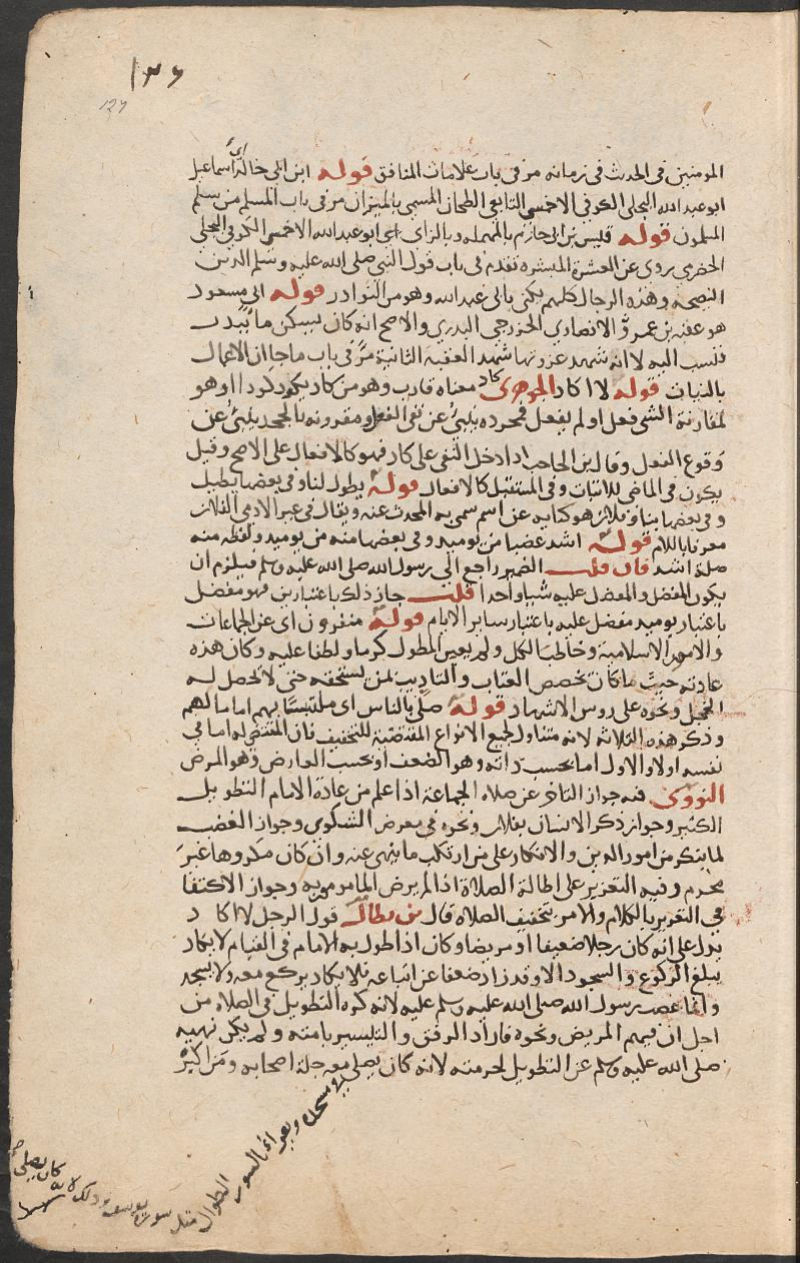 ١٢٦
126
المومنين في الحدث في زمانه مر في باب علامات المنافق قوله ابن ابي خالد اي اسماعيل
ابو عبد الله البجلي الكوفي الاحمسي التابعي الطحان المسمى بالميزان مر في باب المسلم من سلم
المسلمون قوله قيس بن ابي حازم بالمهمله وبالزاي ابو عبد الله الاحمسي الكوفي البجلي
الحضرمي يروي عن العشرة المبشره تقدم في باب قول النبي صلى الله عليه وسلم الدين
النصيحه وهذه الرجال كلهم يكنى بابي عبد الله وهو من النوادر قوله ابي مسعود
هو عقبه بن عمرو الانصاري الخزرجي البدري والاصح انه كان يسكن ماء ببدر
فنسب اليه لا انه شهد غزوتها شهد العقبه الثانية مر في باب ما جا ان الاعمال
بالنيات قوله لا اكاد الجوهري كاد معناه قارب وهو من كاد يكود كودا وهو
لمقاربة الشي فعل او لم يفعل فمجرده ينبئ عن نفي الفعل ومقرونه بالجحد ينبئ عن
وقوع الفعل وقال ابن الحاجب اذا دخل النفي على كاد فهو كالافعال على الاصح وقيل
يكون في الماضي للاثبات وفي المستقبل كالافعال قوله يطول لنا وفي بعضها يطيل
وفي بعضها بنا وفلان هو كنايه عن اسم سمي به المحدث عنه ويقال في غير الادمي الفلان
معرفا باللام قوله اشد غضبا من يوميذ وفي بعضها منه من يوميذ ولفظه منه
صلة اشد فان قلت الضمير راجع الى رسول الله صلى الله عليه وسلم فيلزم ان
يكون المفضل والمفضل عليه شيا واحدا قلت جاز ذلك باعتبارين فهو مفضل
باعتبار يوميذ مفضل عليه باعتبار ساير الايام قوله منفرون اي عن الجماعات
والامور الاسلامية وخاطب الكل ولم يعين المطول كرما ولطفا عليه وكان هذه
عادته حيث ما كان يخصص العتاب والتاديب لمن يستحقه حتى لا تحصل له
الخجل ونحوه على روس الاشهاد قوله صلى بالناس اي ملتبسا بهم اماما لهم
وذكر هذه الثلاثه لانه متناول لجميع الانواع المقتضية للتخفيف فان المقتضي له اما في
نفسه او لا والاول اما بحسب ذاته وهو الضعف او بحسب العارض وهو المرض
النووي فيه جواز التاخر عن صلاه الجماعة اذا علم من عادة الامام التطويل
الكثير وجواز ذكر الانسان بفلان ونحوه في معرض الشكوى وجواز الغضب
لما ينكر من امور الدين والانكار على من ارتكب ما ينهى عنه وان كان مكروها غير
محرم وفيه التعزير على اطالة الصلاة اذا لم يرض المامومون به وجواز الاكتفا
في التعزير بالكلام والامر بتخفيف الصلاه قال بن بطال قول الرجل لا اكاد
يدل على انه كان رجلا ضعيفا او مريضا وكان اذا طول به الامام في القيام لا يكاد
يبلغ الركوع والسجود الا وقد زاد ضعفا عن اتباعه فلا يكاد يركع معه ولا يسجد
وانما غضب رسول الله صلى الله عليه وسلم عليه لانه كره التطويل في الصلاه من
اجل ان فيهم المريض ونحوه فاراد الرفق والتيسير بامته ولم يكن نهيه
صلى الله عليه وسلم عن التطويل لحرمته لانه كان يصلي معه جلة اصحابه ومن اكبر
في مسجده ويقرا في السور الطوال مثل سورة يوسف وذلك لانه كان يصلي